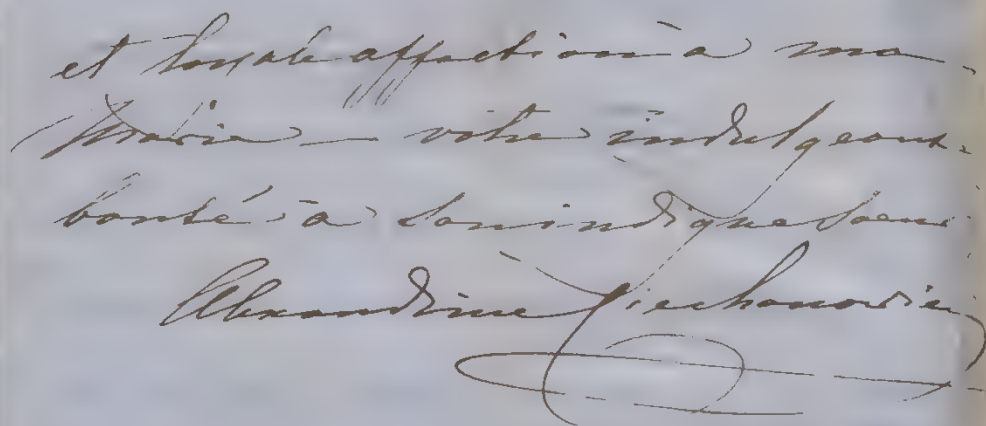 et loyale affection à ma
Marie — votre indulgeante
bonté à son indigne soeur
Alexandrine Ciechanowie